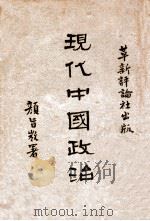 革新評論社出版
現代中國政治
顏旨微署